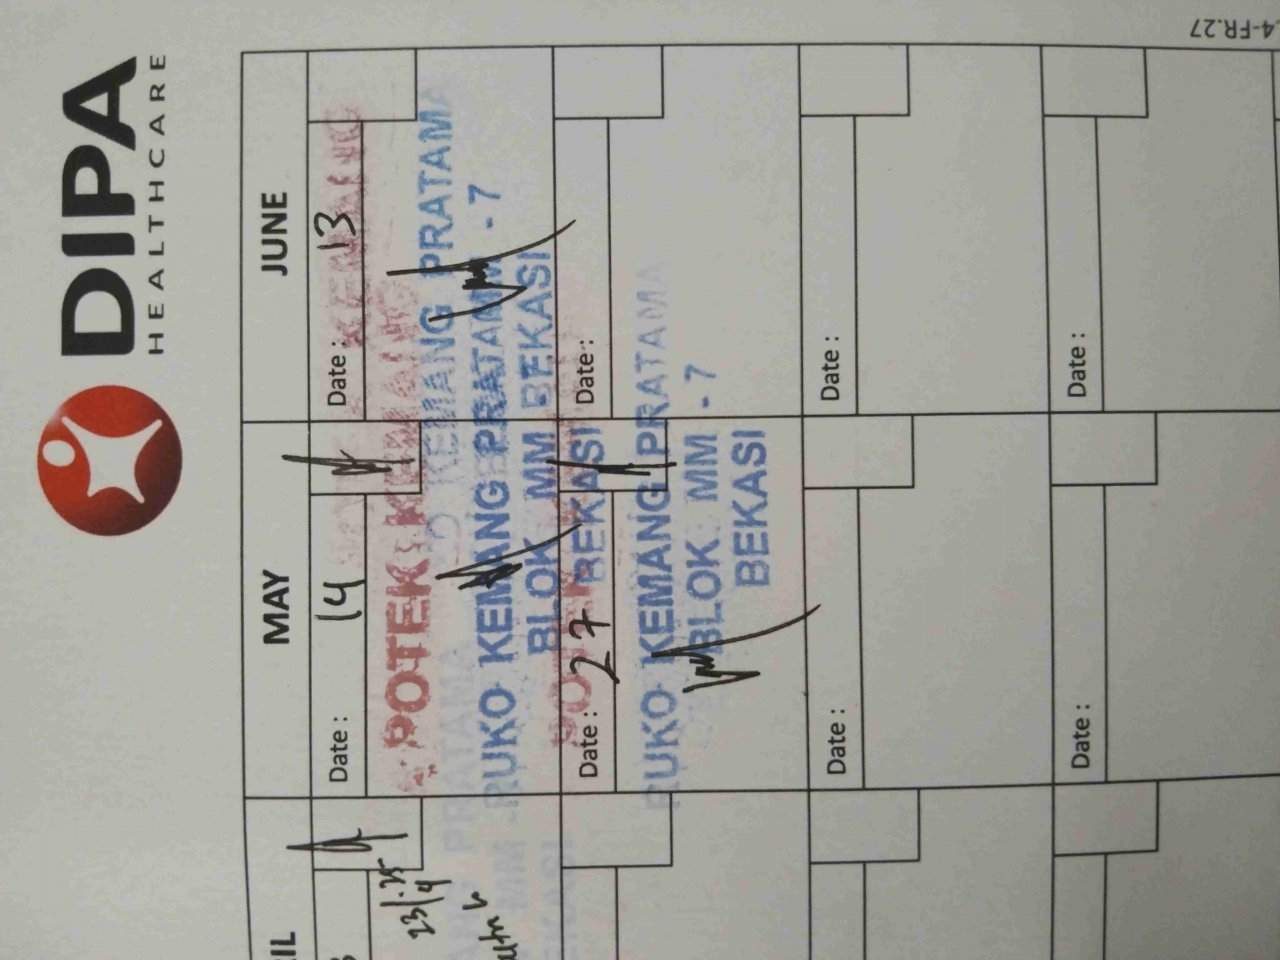 4-FR.27
DIPA
HEALTHCARE
IL
MAY
JUNE
23/4.25
Date : 14
Date : 13
POTEK KEMANG
RUKO KEMANG PRATAMA
BLOK MM - 7
BEKASI
Date : 27
Date :
RUKO KEMANG PRATAMA
BLOK MM - 7
BEKASI
Date :
Date :
Date :
Date :